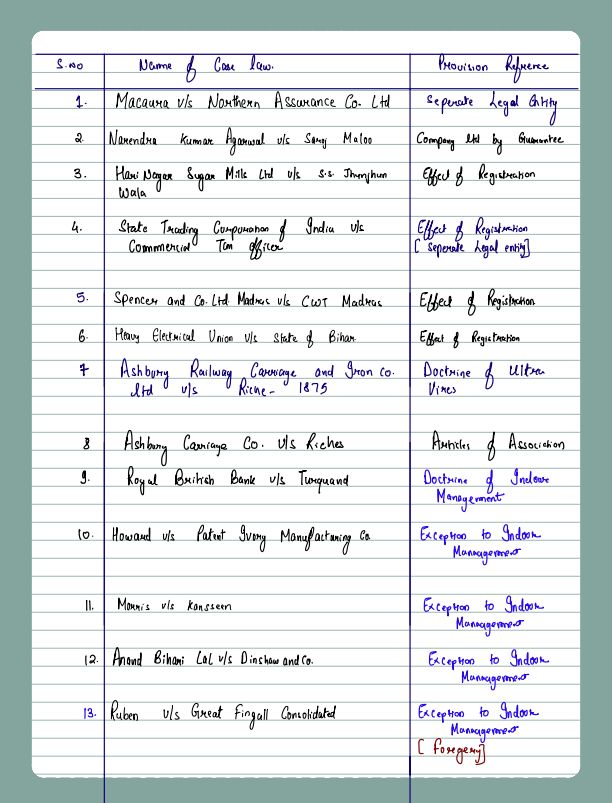 S.no Name of Case law. Provision Refrence
1. Macaura v/s Northern Assurance Co. Ltd Seperate Legal Entity
2. Narendra Kumar Agarwal v/s Saroj Maloo Company ltd by Guarantee
3. Hari Nagar Sugar Mills Ltd v/s S.S. Jhunjhun Effect of Registration
Wala
4. State Trading Corporation of India v/s Effect of Registration
Commercial Tax officer [ Seperate Legal entity]
5. Spencer and Co. Ltd. Madras v/s CWT Madras Effect of Registration
6. Heavy Electrical Union v/s State of Bihar Effect of Registration
7 Ashbury Railway Carriage and Iron Co. Doctrine of Ultra
ltd v/s Riche - 1875 Vires
8 Ashbury Carriage Co. v/s Riches Articles of Association
9. Royal British Bank v/s Turquand Doctrine of Indoor
Management
10. Howard v/s Patent Ivory Manufacturing Co Exception to Indoor
Management
11. Morris v/s Kansseen Exception to Indoor
Management
12. Anand Bihari Lal v/s Dinshaw and Co. Exception to Indoor
Management
13. Ruben v/s Great Fingall Consolidated Exception to Indoor
Management
[ Foregery]